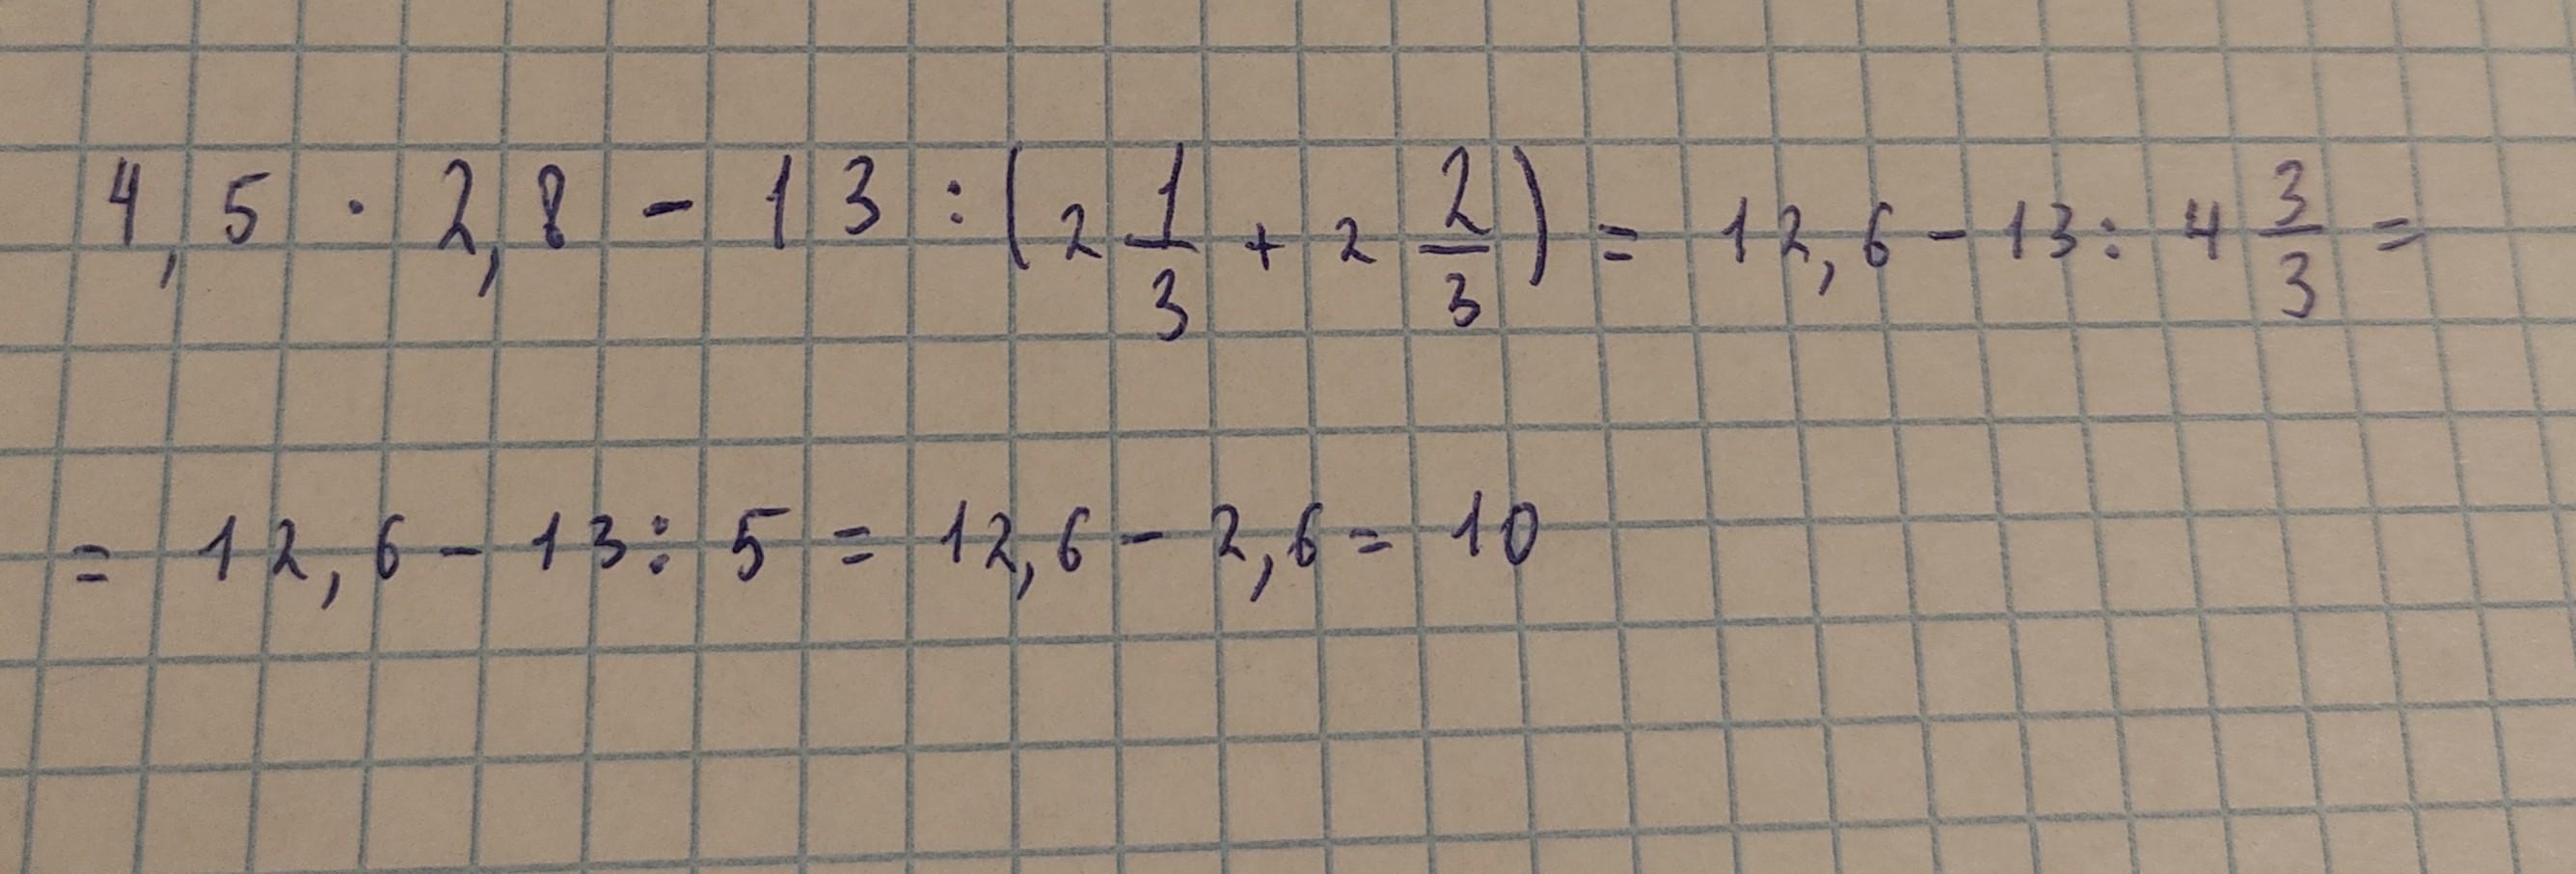 4,5 · 2,8 - 13 : (2 1/3 + 2 2/3) = 12,6 - 13 : 4 3/3 =
= 12,6 - 13 : 5 = 12,6 - 2,6 = 10